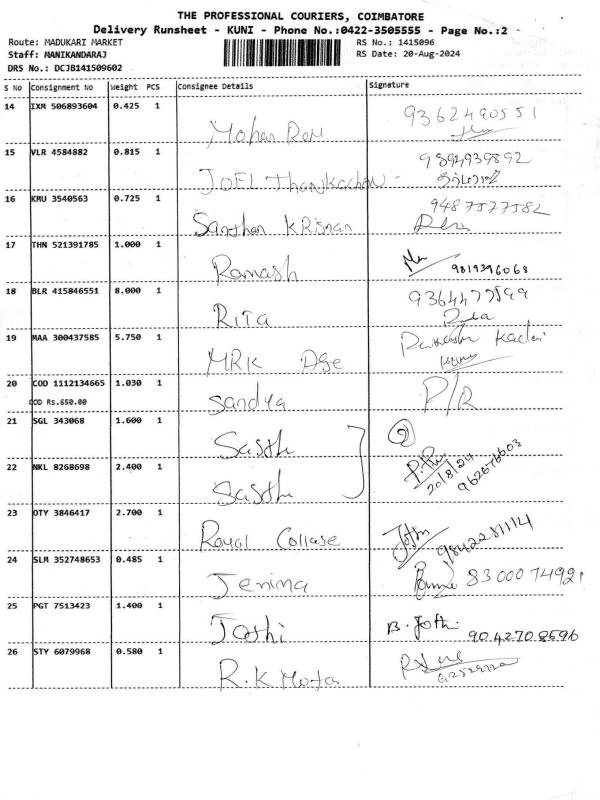 THE PROFESSIONAL COURIERS, COIMBATORE
Delivery Runsheet - KUNI - Phone No.:0422-3505555 - Page No.:2
Route: MADUKARI MARKET RS No.: 1415096
Staff: MANIKANDARAJ RS Date: 20-Aug-2024
DRS No.: DCJB141509602
S No Consignment No Weight PCS Consignee Details Signature
14 IXM 506893604 0.425 1 Mohan Ram 9362490551
15 VLR 4584882 0.815 1 JOEL Thankachan 9894939892
16 KMU 3540563 0.725 1 Santhan KRisnan 9487577582
17 THN 521391785 1.000 1 Ramash 9819396068
18 BLR 415846551 8.000 1 RITA
19 MAA 300437585 5.750 1 MRK
20 COD 1112134665 1.030 1 Sandya P/R
COD Rs.650.00
21 SGL 343068 1.600 1 Sasth 2
22 NKL 8268698 2.400 1 Sasth 20/8/24
23 OTY 3846417 2.700 1 Royal College 9842281114
24 SLM 352748653 0.485 1 Jenima 8300074921
25 PGT 7513423 1.400 1 Jothi B. Jothi 9042708596
26 STY 6079968 0.580 1 R.K Mota